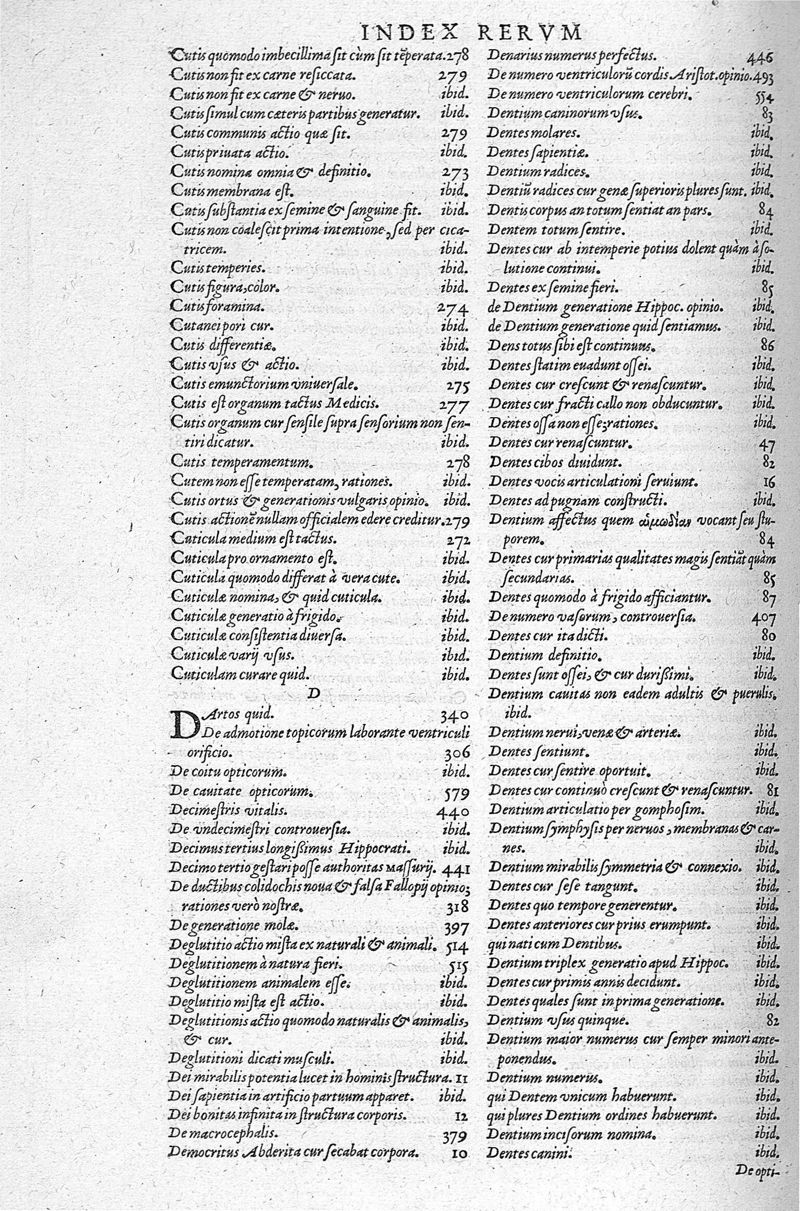 INDEX RERVM
Cutis quomodo imbecillima sit cùm sit tēperata. 278
Cutis non fit ex carne resiccata. 279
Cutis non fit ex carne & neruo. ibid.
Cutis simul cum cæteris partibus generatur. ibid.
Cutis communis actio quæ sit. 279
Cutis priuata actio. ibid.
Cutis nomina omnia & definitio. 273
Cutis membrana est. ibid.
Cutis substantia ex semine & sanguine fit. ibid.
Cutis non coalescit prima intentione, sed per cica-
tricem. ibid.
Cutis temperies. ibid.
Cutis figura, color. ibid.
Cutis foramina. 274
Cutanei pori cur. ibid.
Cutis differentiæ. ibid.
Cutis vsus & actio. ibid.
Cutis emunctorium vniuersale. 275
Cutis est organum tactus Medicis. 277
Cutis organum cur sensile supra sensorium non sen-
tiri dicatur. ibid.
Cutis temperamentum. 278
Cutem non esse temperatam, rationes. ibid.
Cutis ortus & generationis vulgaris opinio. ibid.
Cutis actionē nullam officialem edere creditur. 279
Cuticula medium est tactus. 272
Cuticula pro ornamento est. ibid.
Cuticula quomodo differat à vera cute. ibid.
Cuticulæ nomina, & quid cuticula. ibid.
Cuticulæ generatio à frigido. ibid.
Cuticulæ consistentia diuersa. ibid.
Cuticulæ varij vsus. ibid.
Cuticulam curare quid. ibid.
D
DArtos quid. 340
De admotione topicorum laborante ventriculi
orificio. 306
De coitu opticorum. ibid.
De cauitate opticorum. 579
Decimestris vitalis. 440
De vndecimestri controuersia. ibid.
Decimus tertius longißimus Hippocrati. ibid.
Decimo tertio gestari posse authoritas Massurij. 441
De ductibus colidochis noua & falsa Fallopij opinio;
rationes verò nostræ. 318
De generatione molæ. 397
Deglutitio actio mista ex naturali & animali. 514
Deglutitionem à natura fieri. 515
Deglutitionem animalem esse. ibid.
Deglutitio mista est actio. ibid.
Deglutitionis actio quomodo naturalis & animalis,
& cur. ibid.
Deglutitioni dicati musculi. ibid.
Dei mirabilis potentia lucet in hominis structura. 11
Dei sapientia in artificio partuum apparet. ibid.
Dei bonitas infinita in structura corporis. 12
De macrocephalis. 379
Democritus Abderita cur secabat corpora. 10
Denarius numerus perfectus. 446
De numero ventriculorū cordis Aristot. opinio. 493
De numero ventriculorum cerebri. 554
Dentium caninorum vsus. 83
Dentes molares. ibid.
Dentes sapientiæ. ibid.
Dentium radices. ibid.
Dentiū radices cur genæ superioris plures sunt. ibid.
Dentis corpus an totum sentiat an pars. 84
Dentem totum sentire. ibid.
Dentes cur ab intemperie potius dolent quàm à so-
lutione continui. ibid.
Dentes ex semine fieri. 85
de Dentium generatione Hippoc. opinio. ibid.
de Dentium generatione quid sentiamus. ibid.
Dens totus sibi est continuus. 86
Dentes statim euadunt ossei. ibid.
Dentes cur crescunt & renascuntur. ibid.
Dentes cur fracti callo non obducuntur. ibid.
Dentes ossa non esse, rationes. ibid.
Dentes cur renascuntur. 47
Dentes cibos diuidunt. 82
Dentes vocis articulationi seruiunt. 16
Dentes ad pugnam constructi. ibid.
Dentium affectus quem αἱμωδίαν vocant seu stu-
porem. 84
Dentes cur primarias qualitates magis sentiāt quàm
secundarias. 85
Dentes quomodo à frigido afficiantur. 87
De numero vasorum, controuersia. 407
Dentes cur ita dicti. 80
Dentium definitio. ibid.
Dentes sunt ossei, & cur durißimi. ibid.
Dentium cauitas non eadem adultis & puerulis,
ibid.
Dentium nerui, venæ & arteriæ. ibid.
Dentes sentiunt. ibid.
Dentes cur sentire oportuit. ibid.
Dentes cur continuò crescunt & renascuntur. 81
Dentium articulatio per gomphosim. ibid.
Dentium symphysis per neruos, membranas & car-
nes. ibid.
Dentium mirabilis symmetria & connexio. ibid.
Dentes cur sese tangunt. ibid.
Dentes quo tempore generentur. ibid.
Dentes anteriores cur prius erumpunt. ibid.
qui nati cum Dentibus. ibid.
Dentium triplex generatio apud Hippoc. ibid.
Dentes cur primis annis decidunt. ibid.
Dentes quales sunt in prima generatione. ibid.
Dentium vsus quinque. 82
Dentium maior numerus cur semper minori ante-
ponendus. ibid.
Dentium numerus. ibid.
qui Dentem vnicum habuerunt. ibid.
qui plures Dentium ordines habuerunt. ibid.
Dentium incisorum nomina. ibid.
Dentes canini. ibid.
De opti-